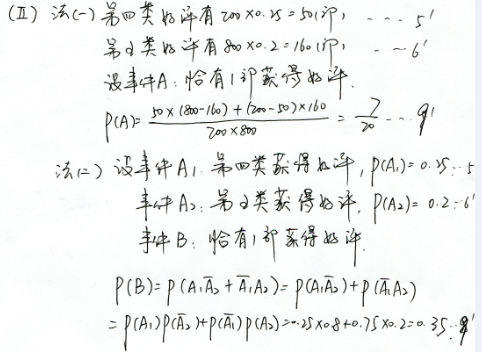 (Ⅱ) 法(一) 第四类好评有 200×0.25=50(部), ---- 5'
第五类好评有 800×0.2=160(部), --- 6'
设事件A:恰有1部获得好评.
P(A)= \frac{50×(800-160)+(200-50)×160}{200×800} = \frac{7}{20} --- 9'
法(二) 设事件A₁:第四类获得好评, P(A₁)=0.25 --- 5
事件A₂:第五类获得好评, P(A₂)=0.2 -- 6'
事件B:恰有1部获得好评.
P(B)=P(A₁Ā₂+Ā₁A₂)=P(A₁Ā₂)+P(Ā₁A₂)
=P(A₁)P(Ā₂)+P(Ā₁)P(A₂)=0.25×0.8+0.75×0.2=0.35 -- 9'